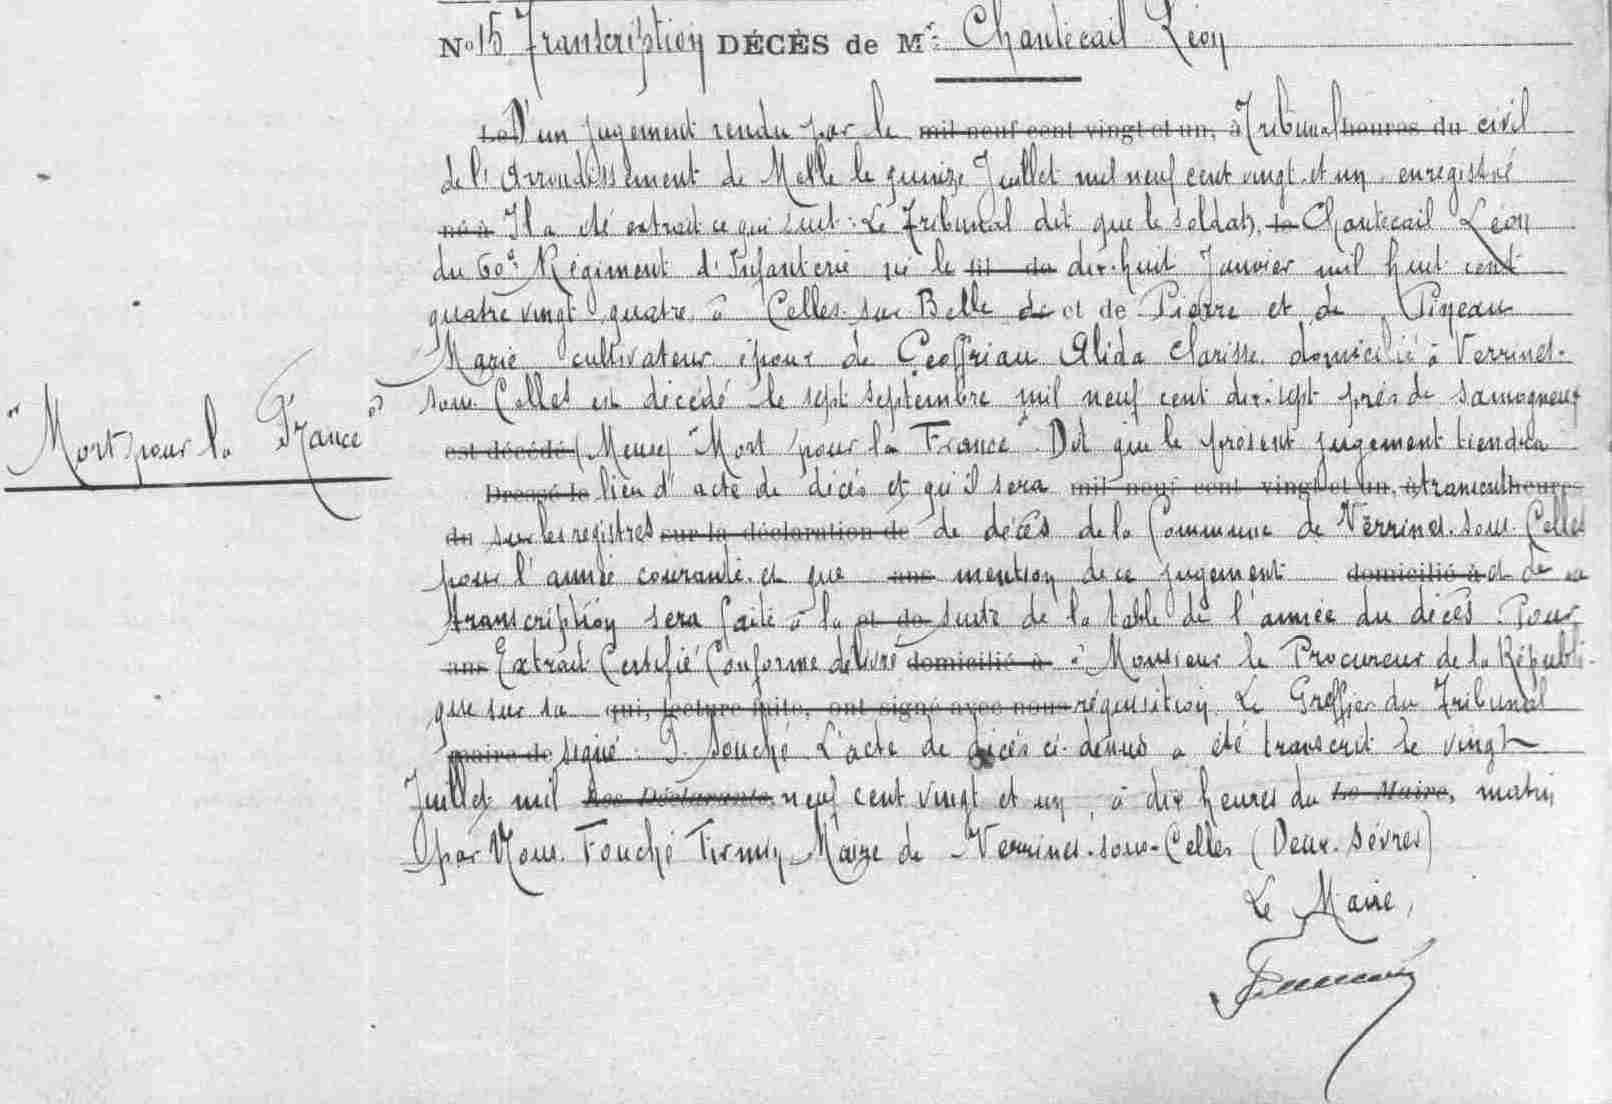 No 15 Transcription DÉCÈS de Mr: Chantecail Léon
Le D'un jugement rendu par le mil neuf cent vingt et un, à Tribunal heures du civil
de l'Arrondissement de Melle le quinze Juillet mil neuf cent vingt et un enregistré
né à Il a été extrait ce qui suit : Le Tribunal dit que le soldat, le Chantecail Léon
du 60e Régiment d'Infanterie né le fil de dix-huit Janvier mil huit cent
quatre vingt quatre à Celles-sur Belle de et de Pierre et de Pineau
Marie cultivateur époux de Geoffriau Alida Clarisse domicilié à Verrines-
sous Celles est décédé le sept septembre mil neuf cent dix-sept près de Samogneux
"Mort pour la France"
est décédé (Meuse) "Mort pour la France". Dit que le présent jugement tiendra
Dressé le lieu d'acte de décès et qu'il sera mil neuf cent vingt et un, à transcrit heures
du sur les registres sur la déclaration de de décès de la Commune de Verrines-sous-Celles
pour l'année courante et que ans mention de ce jugement domicilié à et de sa
transcription sera faite à la et de suite de la table de l'année du décès. Pour
ans Extrait Certifié Conforme délivré domicilié à à Monsieur le Procureur de la Républi-
que sur sa qui, lecture faite, ont signé avec nous réquisition. Le Greffier du Tribunal
maire de signé : Souché L'acte de décès ci-dessus a été transcrit le vingt
Juillet mil Les Déclarants, neuf cent vingt et un, à dix heures du Le Maire, matin
par Nous Fouché Firmin Maire de Verrines-sous-Celles (Deux-Sèvres)
Le Maire,